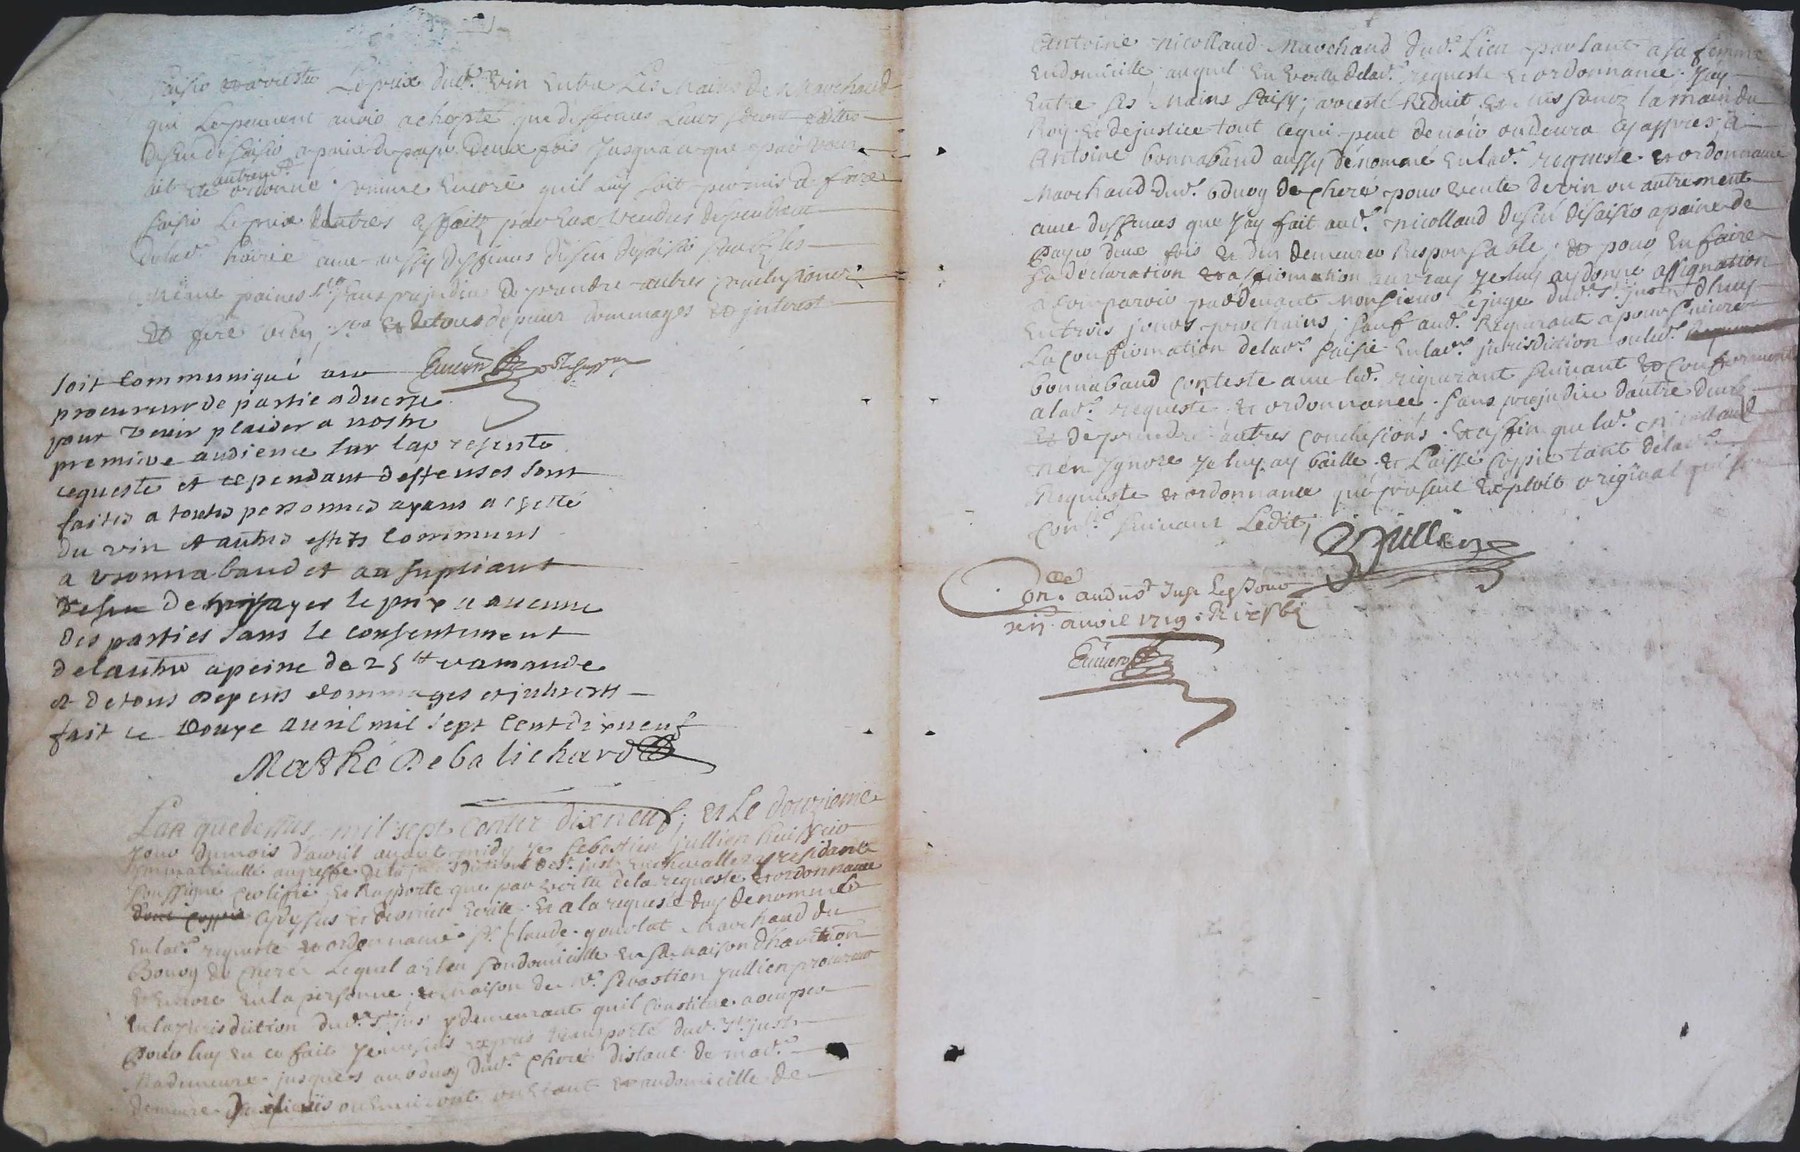 saisir et arrester Le prix dud. vin Entre Les Mains des Marchand
qui Le peuvent avoir achepté que deffences Leurs seront
desen desaisir a paine de payer Deux fois Jusqua ce que par vous
autrem.
soit ordonné comme Encore quil luy soit permis de fere
saisir Le prix dautres effaitz par Eux vendus dependant
delad. hoirie avec aussy deffences desen desaisir soub les
même paines sans prejudice de prendre autres conclusions
Et fere bien et de tous depans dommages et interest
soit communiqué au
procureur de partie adverse
pour venir plaider a nostre
premiere audience sur la presente
requeste et cependant deffenses sont
faites a toutes personnes ayans achetté
du vin et autres effets communs
a bonnabaud et au supliant
de payer le prix a aucune
des parties sans le consentement
de lautre a peine de 25 tt damande
et de tous depens dommages et interests
fait ce Douze avril mil sept cent dix neuf
Mathé De balichard
Lan que dessus mil sept centz dix neuf, et Le douzieme
Jour du mois davril avant midy Je Sebastien Jullien huissier
immatriculle au greffe de la jurisdiction de st. just en chevallet y residant
soussigné certiffie et Rapporte que par vertu de la requeste et ordonnance
cy dessus et dernier Ecrite Et a la requeste du denommé
En lad. requeste et ordonnance sr. Claude marchand du
Bourg de Cheré Lequel a Eleu son domicille En sa maison dhabittation
Et Encore En la personne et maison de Me. Sebastien Jullien procureur
En la jurisdiction dud. st. just y demeurant quil constitue a occuper
pour luy En ce fait Je me suis expres transporté dud. st. just
Ma demeure jusques au bourg dud. Cheré distant de mad.
demeure lieues ou Environt ou Etant Et au domicille de
Antoine Nicollaud Marchand dud. Lieu parlant a sa femme
En domicille auquel En vertu de lad. requeste et ordonnance Jay
Entre ses Mains saisy, arresté Reduit et mis soubz la main du
Roy Et de justice tout ce qui peut devoir ou devra cy appres, a
Antoine bonnabaud aussy denommé En lad. requeste et ordonnance
Marchand dud. bourg de Cheré pour vente de vin ou autrement
avec deffences que Jay fait aud. Nicollaud desen desaisir a paine de
payer deux fois et den demeurer Responsable, et pour En faire
sa declaration et affirmation au vray Je luy ay donné assignation
a comparoir pardevant Monsieur le juge dud. st. just dhuy
En trois jours prochains, sauf aud. Requerant a poursuivre
La confirmation de lad. saisie En lad. jurisdiction ou led.
bonnabaud conteste avec led. requerant suivant et conformement
a lad. requeste et ordonnance sans prejudice dautre deub
Et de prendre autres conclusions Et affin que led. Nicollaud
nen Ignore Je luy ay baille et Laisse coppie tant de lad.
Requeste et ordonnance que present Exploit original
con. suivant Ledit,
Jullien
Con. aud. st. Just Le
avril 1719